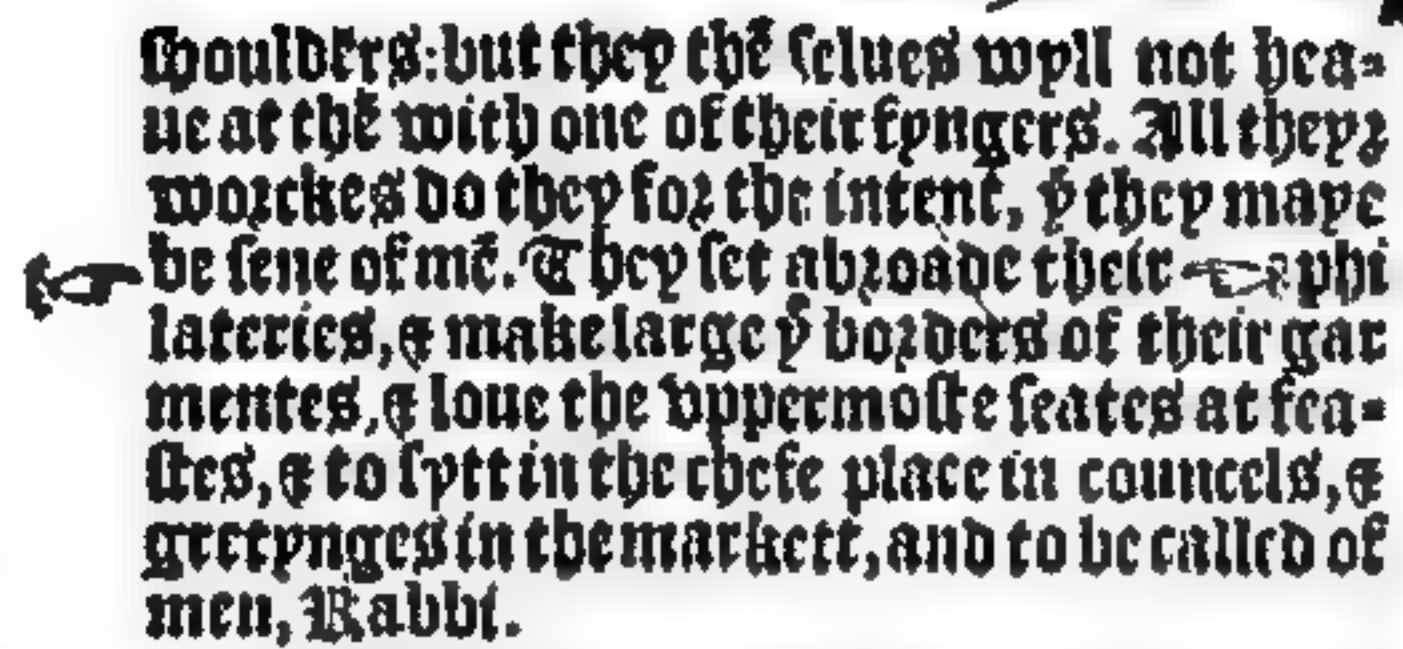 shoulders: but they thē selues wyll not hea-
ue at thē with one of their fyngers. All theyr
worckes do they for the intent, yͭ they maye
be sene of mē. They set abroade their ☜ phi
lateries, & make large yͤ borders of their gar
mentes, & loue the vppermoste seates at fea-
stes, & to sytt in the chefe place in councels, &
gretynges in the markett, and to be called of
men, Rabbi.